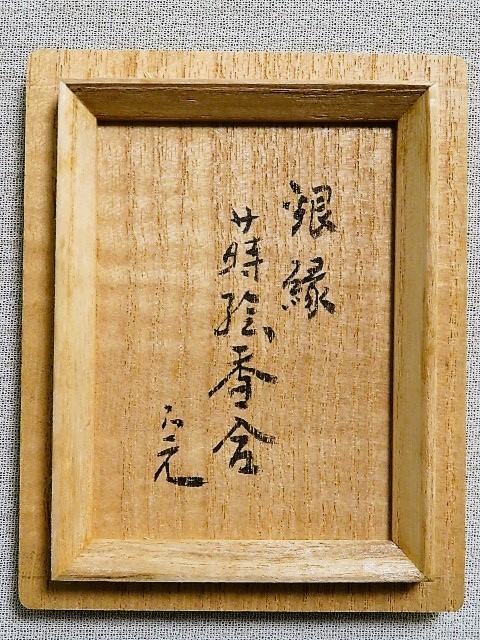 銀縁
蒔絵香合
元